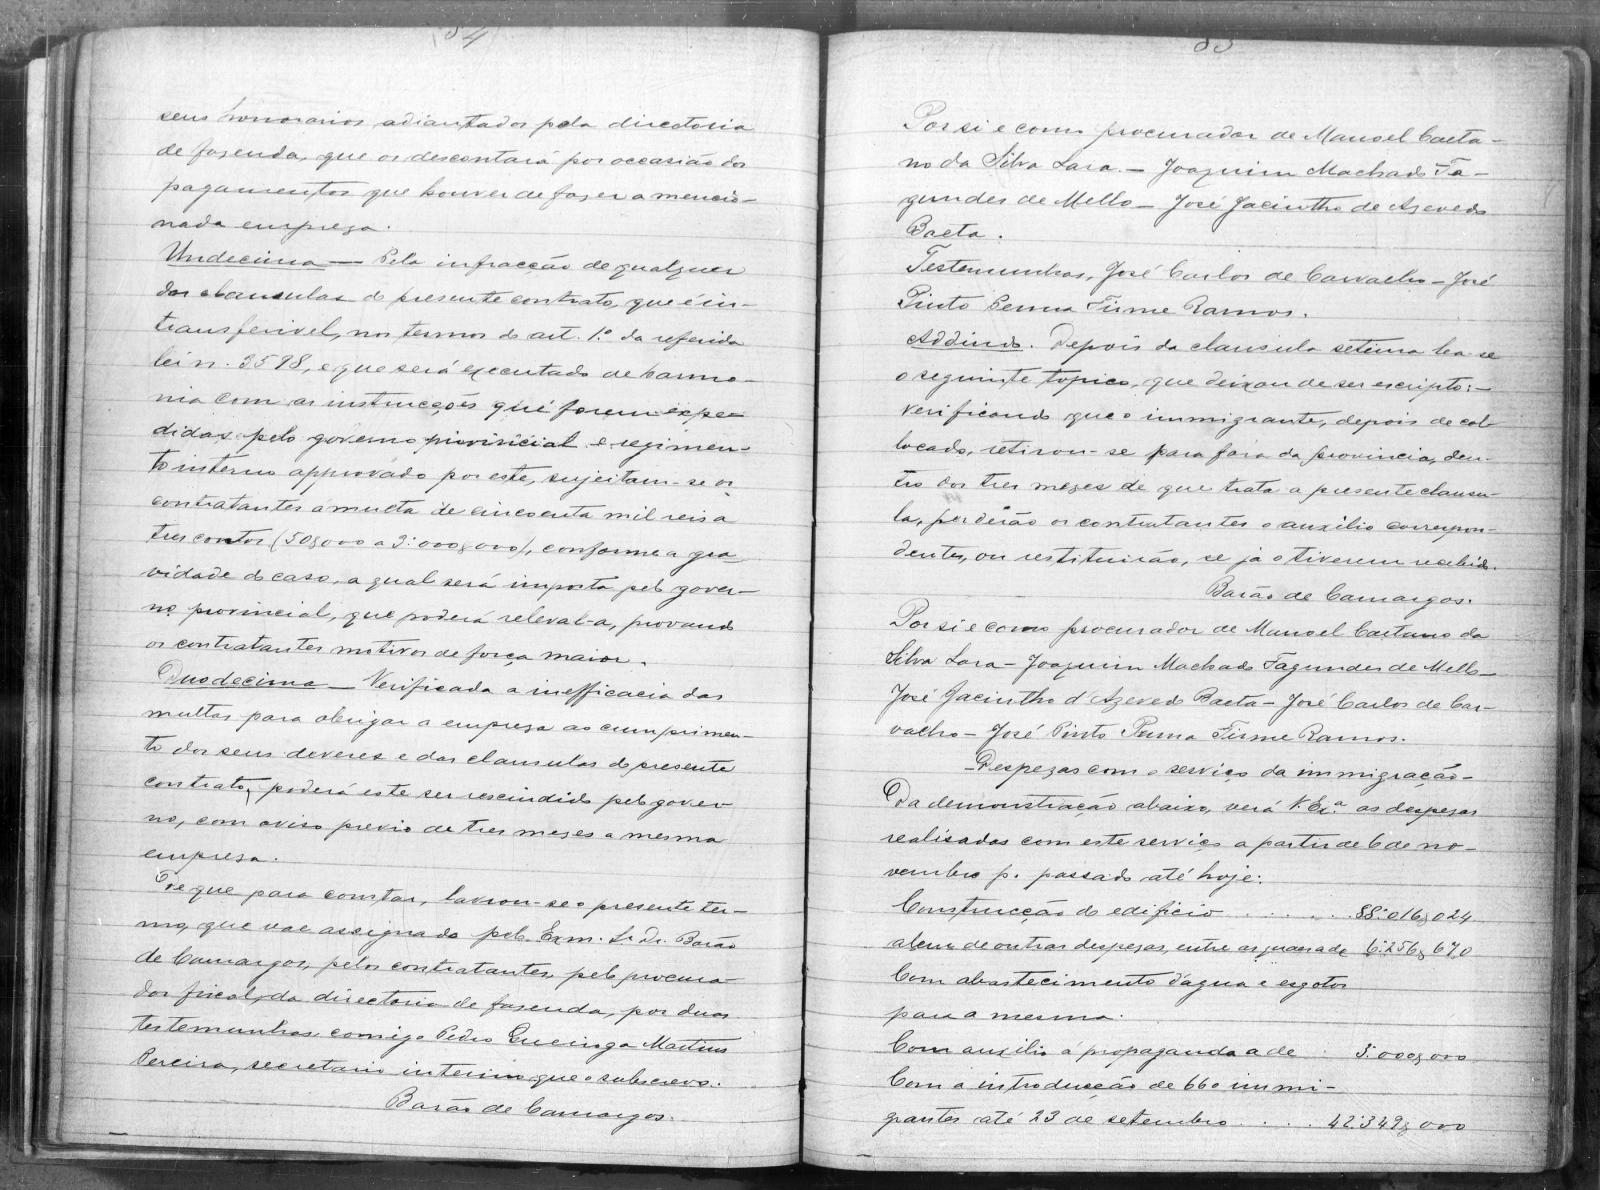 84
seus honorarios adiantados pela directoria
de fazenda, que os descontará por occasião dos
pagamentos que houver de fazer a mencio-
nada empreza.
Undecima — Pela infracção de qualquer
das clausulas do presente contrato, que é in-
transferivel, nos termos do art. 1.º da referida
lei n. 3598, e que será executado de harmo-
nia com as instrucções que forem expe-
didas pelo governo provincial e regimen-
to interno approvado por este, sujeitam-se os
contratantes á multa de cincoenta mil reis a
tres contos (50$000 a 3:000$000), conforme a gra-
vidade do caso, a qual será imposta pelo gover-
no provincial, que poderá releval-a, provando
os contratantes motivos de força maior.
Duodecima — Verificada a inefficacia das
multas para obrigar a empreza ao cumprimen-
to dos seus deveres e das clausulas do presente
contrato, poderá este ser rescindido pelo gover-
no, com aviso previo de tres mezes a mesma
empreza.
De que para constar, lavrou-se o presente ter-
mo, que vae assignado pelo Exm. Sr. Dr. Barão
de Camargos, pelos contratantes, pelo procura-
dor fiscal, da directoria de fazenda, por duas
testemunhas comigo Pedro Queiroga Martins
Pereira, secretario interino que o subscrevo.
Barão de Camargos.
85
Por si e como procurador de Manoel Caeta-
no da Silva Lara. — Joaquim Machado Fa-
gundes de Mello — José Jacintho de Azevedo
Baeta.
Testemunhas, José Carlos de Carvalho — José
Pinto Penna Firme Ramos.
Addindo. Depois da clausula setima lea-se
o seguinte topico, que deixou de ser escripto: —
verificando que o immigrante, depois de col-
locado, retirou-se para fora da provincia, den-
tro dos tres mezes de que trata a presente clausu-
la, perderão os contratantes o auxilio correspon-
dente, ou restituirão, se já o tiverem recebido.
Barão de Camargos.
Por si e como procurador de Manoel Caetano da
Silva Lara — Joaquim Machado Fagundes de Mello —
José Jacintho d'Azevedo Baeta — José Carlos de Car-
valho — José Pinto Penna Firme Ramos.
— Despezas com o serviço da immigração —
Da demonstração abaixo, verá V. Ex.ª as despezas
realisadas com este serviço a partir de 6 de no-
vembro p. passado até hoje:
Construcção do edificio . . . . . 88:016$024
alem de outras despezas, entre as quaes a de 6:256$670
Com abastecimento d'agua e esgotos
para a mesma.
Com auxilio á propaganda a de . 3:000$000
Com a introducção de 660 immi-
grantes até 23 de setembro . . . . 42:349$000